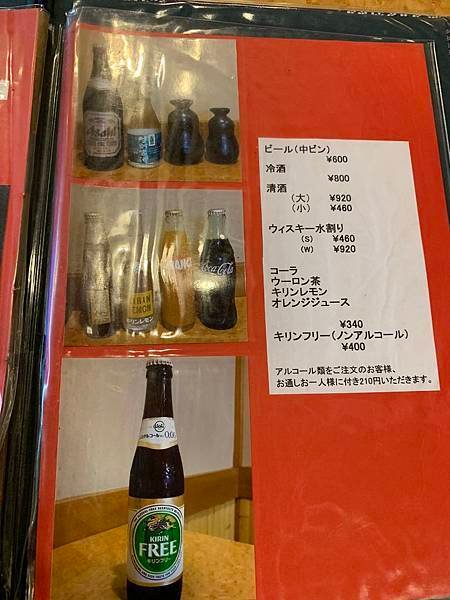 ビール(中ビン)
¥600
冷酒
¥800
清酒
(大) ¥920
(小) ¥460
ウィスキー水割り
(S) ¥460
(W) ¥920
コーラ
ウーロン茶
キリンレモン
オレンジジュース
¥340
キリンフリー(ノンアルコール)
¥400
アルコール類をご注文のお客様、
お通しお一人様に付き210円いただきます。
Asahi
キリンレモン
Coca-Cola
0.00
KIRIN
FREE
キリンフリー